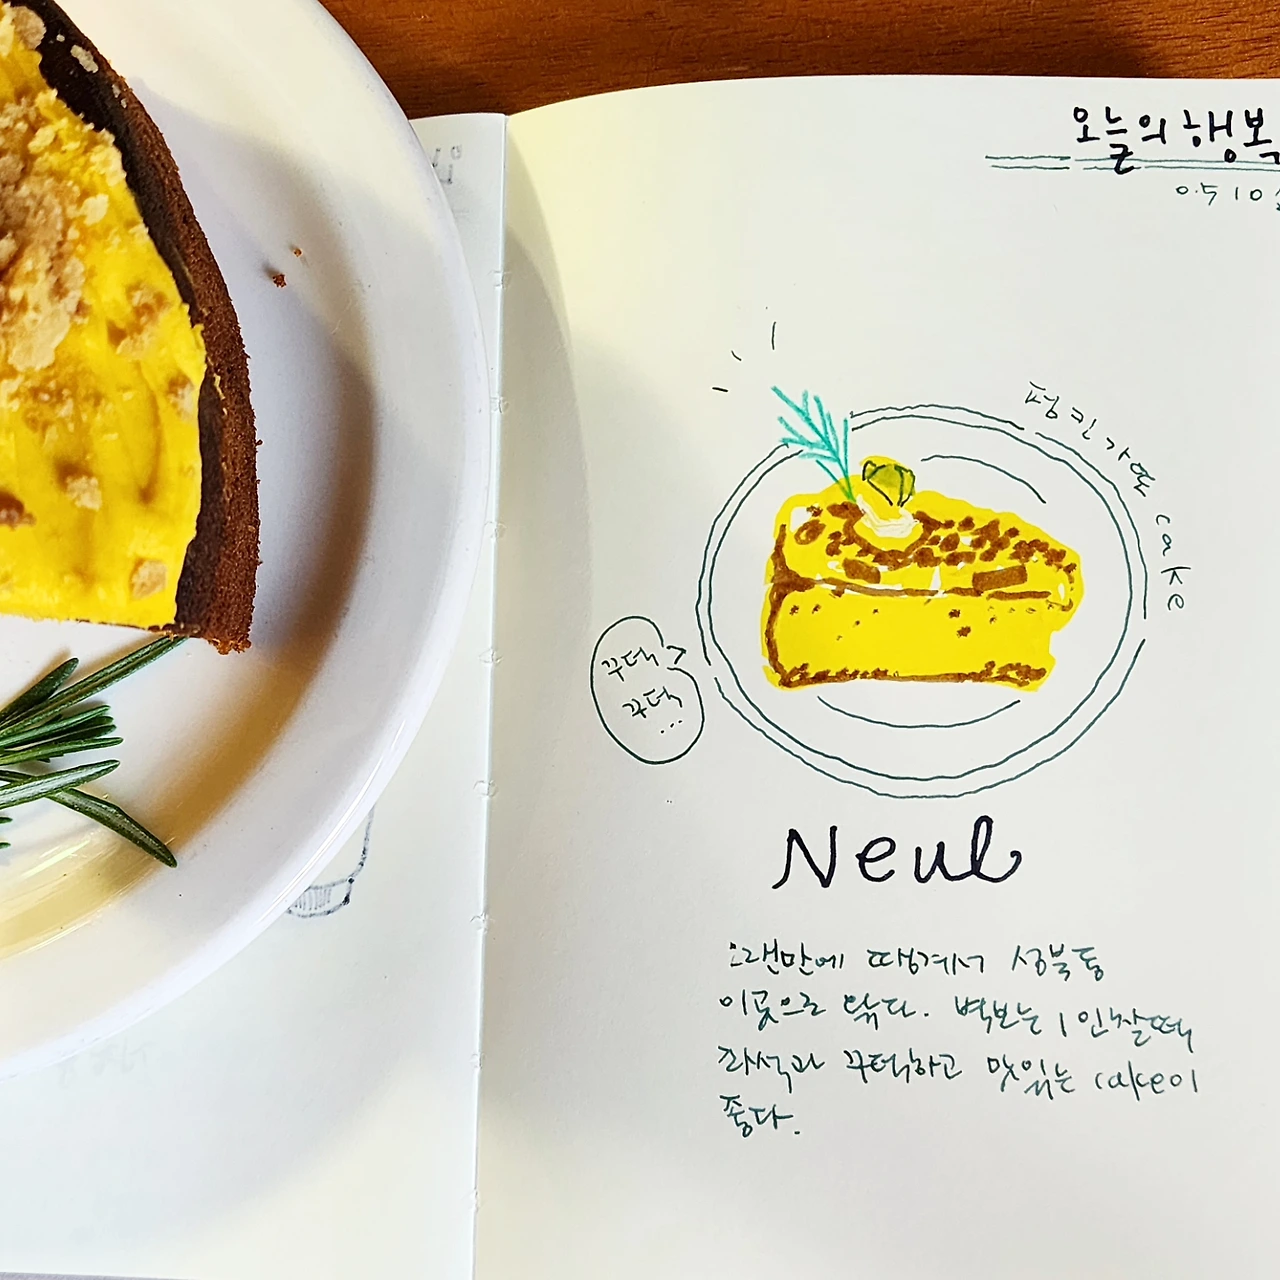 오늘의 행복
0510
펌킨가또 cake
꾸덕
꾸덕
...
Neul
오랜만에 땡겨서 성북동
이곳으로 왔다. 벽보는 1인찰떡
좌석과 꾸덕하고 맛있는 cake이
좋다.